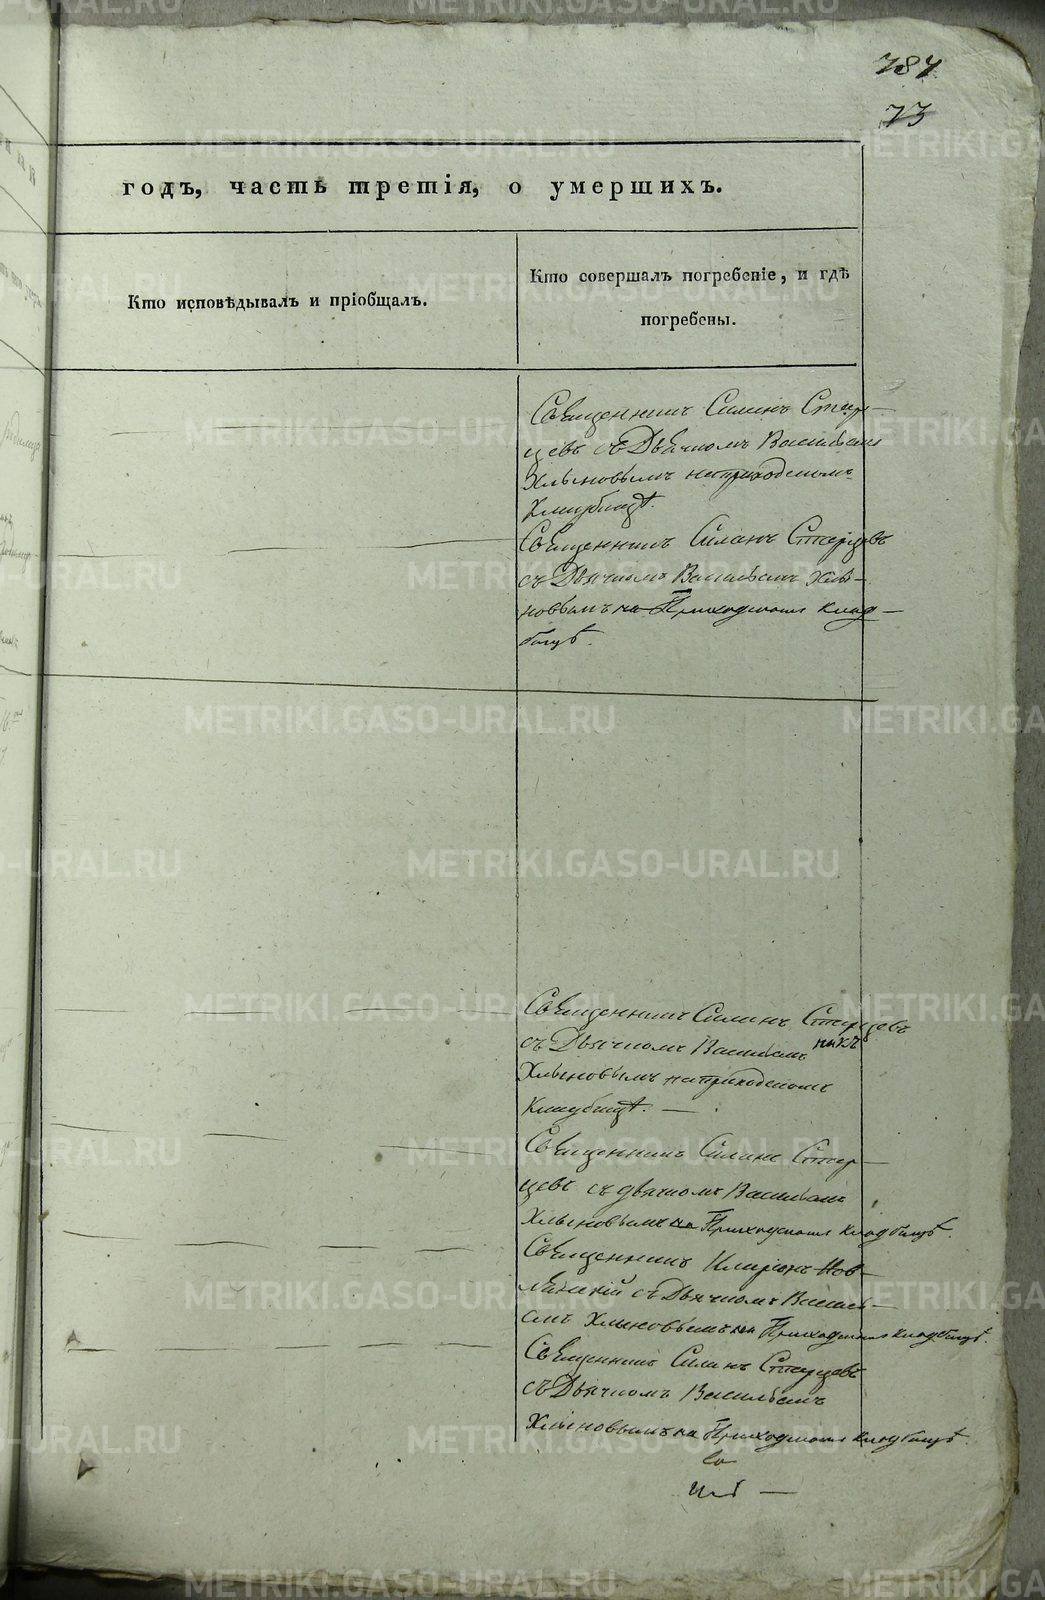 787
73
годъ, часть третія, о умершихъ.
Кто исповѣдывалъ и пріобщалъ.
Кто совершалъ погребеніе, и гдѣ
погребены.
Священникъ Силинъ Стар—
цевъ съ Дьячкомъ Васильемъ
Хлыновымъ на приходскомъ
Кладбищѣ.
Священникъ Силинъ Старцевъ
съ Дьячкомъ Васильемъ Хлы—
новымъ на Приходскомъ клад—
бищѣ.
Священникъ Силинъ Старцевъ
съ Дьячкомъ Васильемъ
Хлыновымъ на приходскомъ
Кладбищѣ. —
Священникъ Силинъ Стар—
цевъ съ дьячкомъ Васильемъ
Хлыновымъ на Приходскомъ кладбищѣ.
Священникъ
съ Дьячкомъ Василь—
емъ Хлыновымъ на Приходскомъ кладбищѣ.
Священникъ Силинъ Старцевъ
съ Дьячкомъ Васильемъ
Хлыновымъ на Приходскомъ кладбищѣ.
METRIKI.GASO-URAL.RU